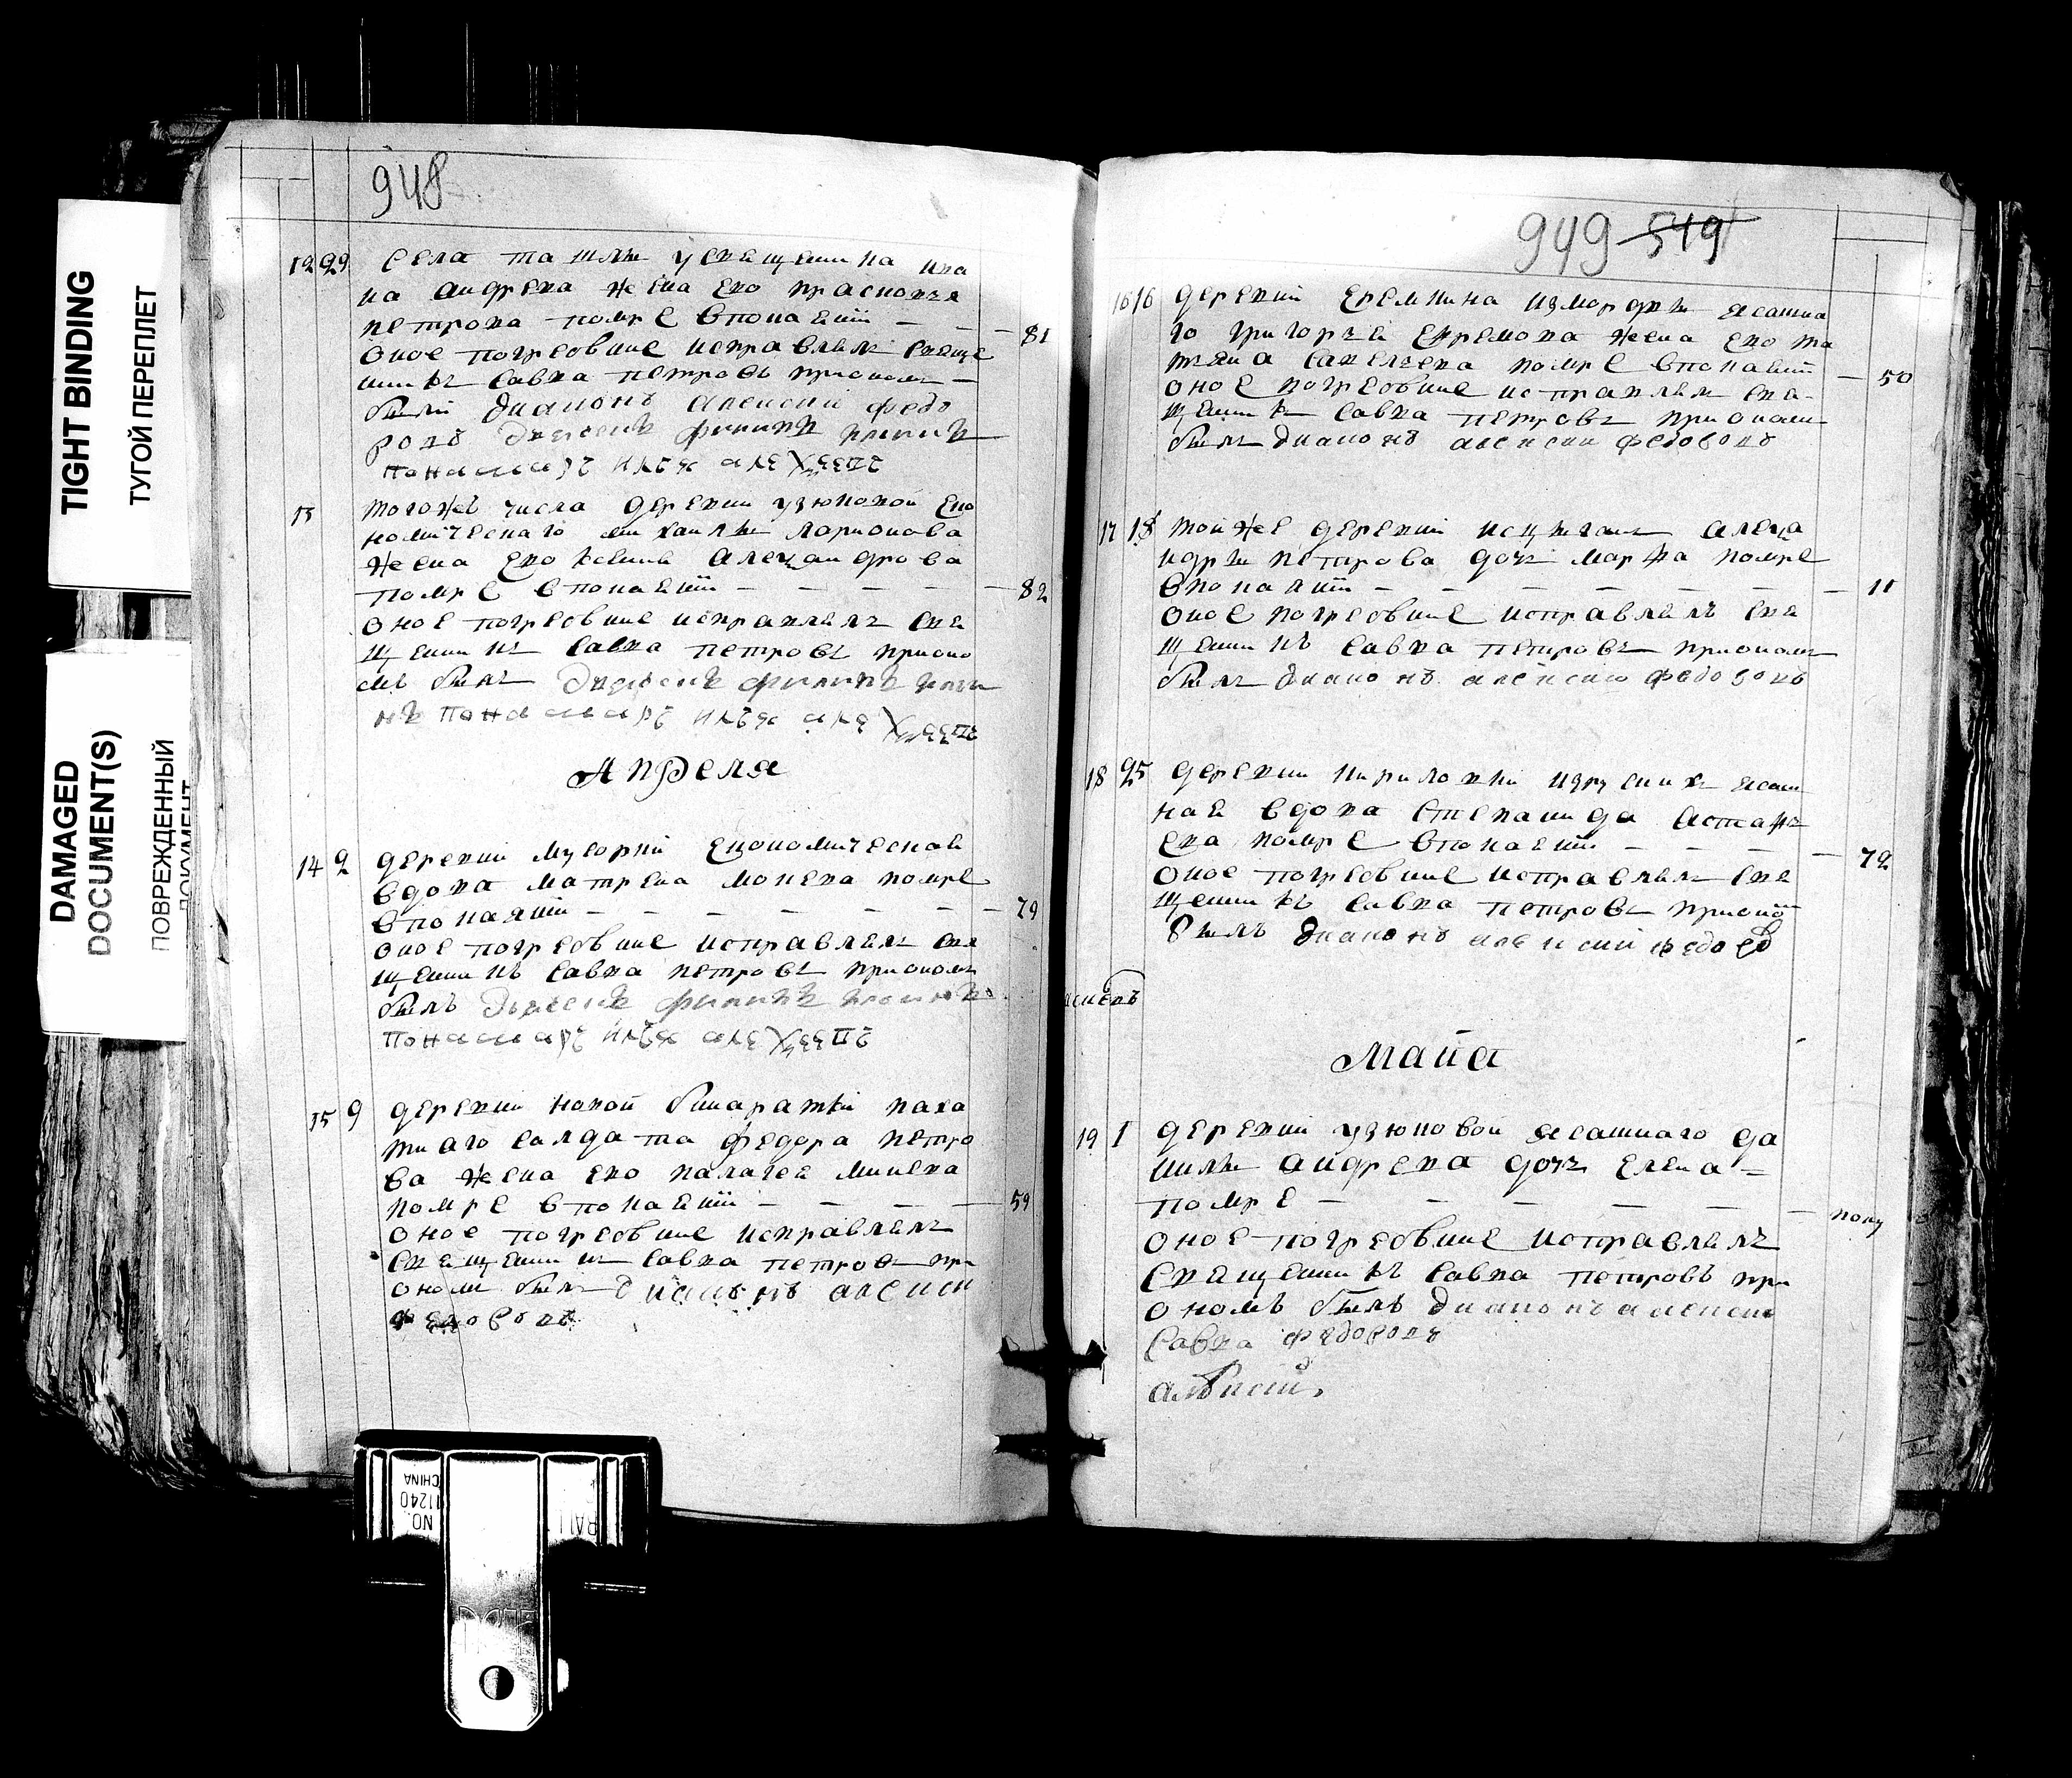 TIGHT BINDING
ТУГОЙ ПЕРЕПЛЕТ
DAMAGED
DOCUMENT(S)
ПОВРЕЖДЕННЫЙ
ДОКУМЕНТ
948
12 29 села ташлы у священника ива
на андреева жена ево прасковъя
петрова помре впокаянии
81
оное погребение исправлялъ свяще
никъ савва петровъ приономъ
были диаконъ алексии федо
ровъ филипъ
понамарь илья алексеевъ
13 тогожъ числа деревни узюковой еко
номическаго михаилы ларионова
жена ево александрова
помре впокаянии
82
оное погребение исправлялъ свя
щенникъ савва петровъ прионо
мъ былъ филипъ
понамарь илья алексеевъ
Апреля
14 2 деревни мусорки економическая
вдова матрена мокеева помре
впокаянии
79
оное погребение исправлялъ свя
щенникъ савва петровъ приономъ
былъ филипъ
понамарь илья алексеевъ
15 9 деревни новой бинаратки паха
тнаго салдата федора петро
ва жена ево палагея минеева
помре впокаянии
59
оное погребение исправлялъ
священникъ савва петровъ при
ономъ былъ диаконъ алексии
федоровъ
949 519
16 16 деревни еремкина измордвы ясашна
го григоръя ефремова жена ево та
тъяна савелъева помре впокаянии
50
оное погребение исправлялъ свя
щенникъ савва петровъ приономъ
былъ диаконъ алексии федоровъ
17 18 тойже деревни алекса
ндры петрова дочъ марфа помре
впокаянии
11
оное погребение исправлялъ свя
щенникъ савва петровъ приономъ
былъ диаконъ алексию федоровъ
18 25 деревни кириловки изрускихъ ясаш
ная вдова степанида астафъ
ева помре впокаянии
72
оное погребение исправлялъ свя
щенникъ савва петровъ прионо
былъ диаконъ алексии федоров
Майя
19 1 деревни узюковой ясашнаго да
нилы андреева дочъ елена
помре
полу
оное погребение исправлялъ
священникъ савва петровъ при
ономъ былъ диаконъ алексии
савва федоровъ
NO. 11240
CHINA